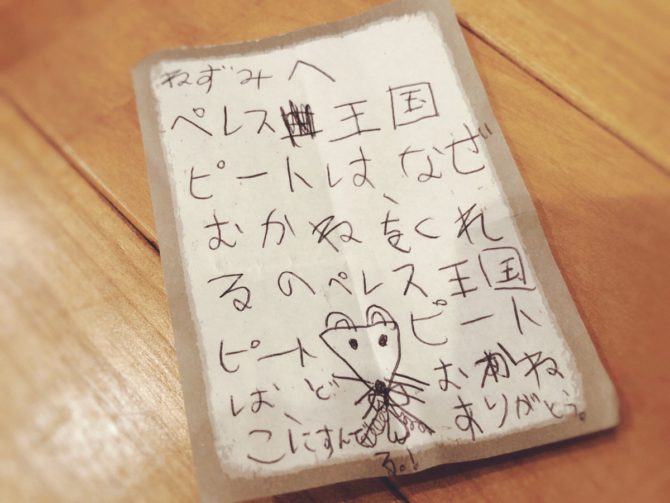 ねずみへ
ペレス王国
ピートは、なぜ
おかねをくれ
るのペレス王国
ピート
は、ど
こにすんでい
る。!
ピート
おかね
ありがとう。